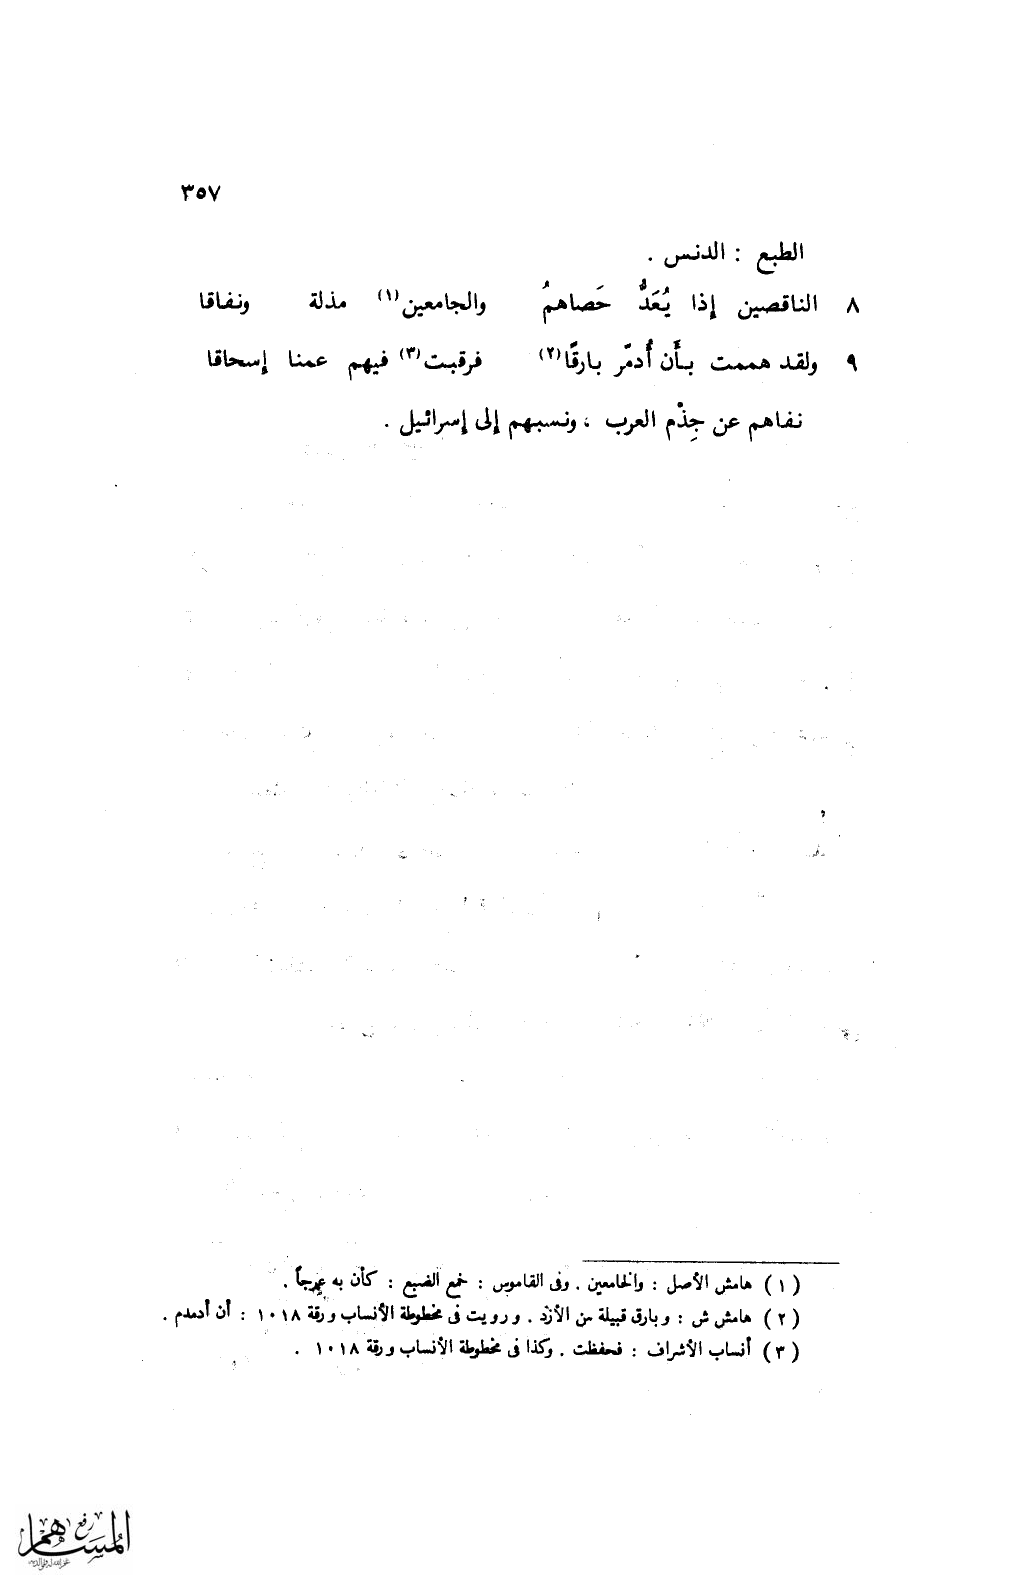 ٣٥٧
الطبع : الدنس .
٨ الناقصين إذا يُعَدُّ حَصاهمُ والجامعين(١) مذلة ونفاقا
٩ ولقد هممت بأَن أُدمّر بارقًا(٢) فرقبت(٣) فيهم عمنا إسحاقا
نفاهم عن جِذْم العرب ، ونسبهم إلى إسرائيل .
(١) هامش الأصل : والخامعين . وفى القاموس : خمع الضبع : كأن به عرجاً .
(٢) هامش ش : وبارق قبيلة من الأزد . ورويت فى مخطوطة الأنساب ورقة ١٠١٨ : أن أدمدم .
(٣) أنساب الأشراف : فحفظت . وكذا فى مخطوطة الأنساب ورقة ١٠١٨ .
رفع
المساهم